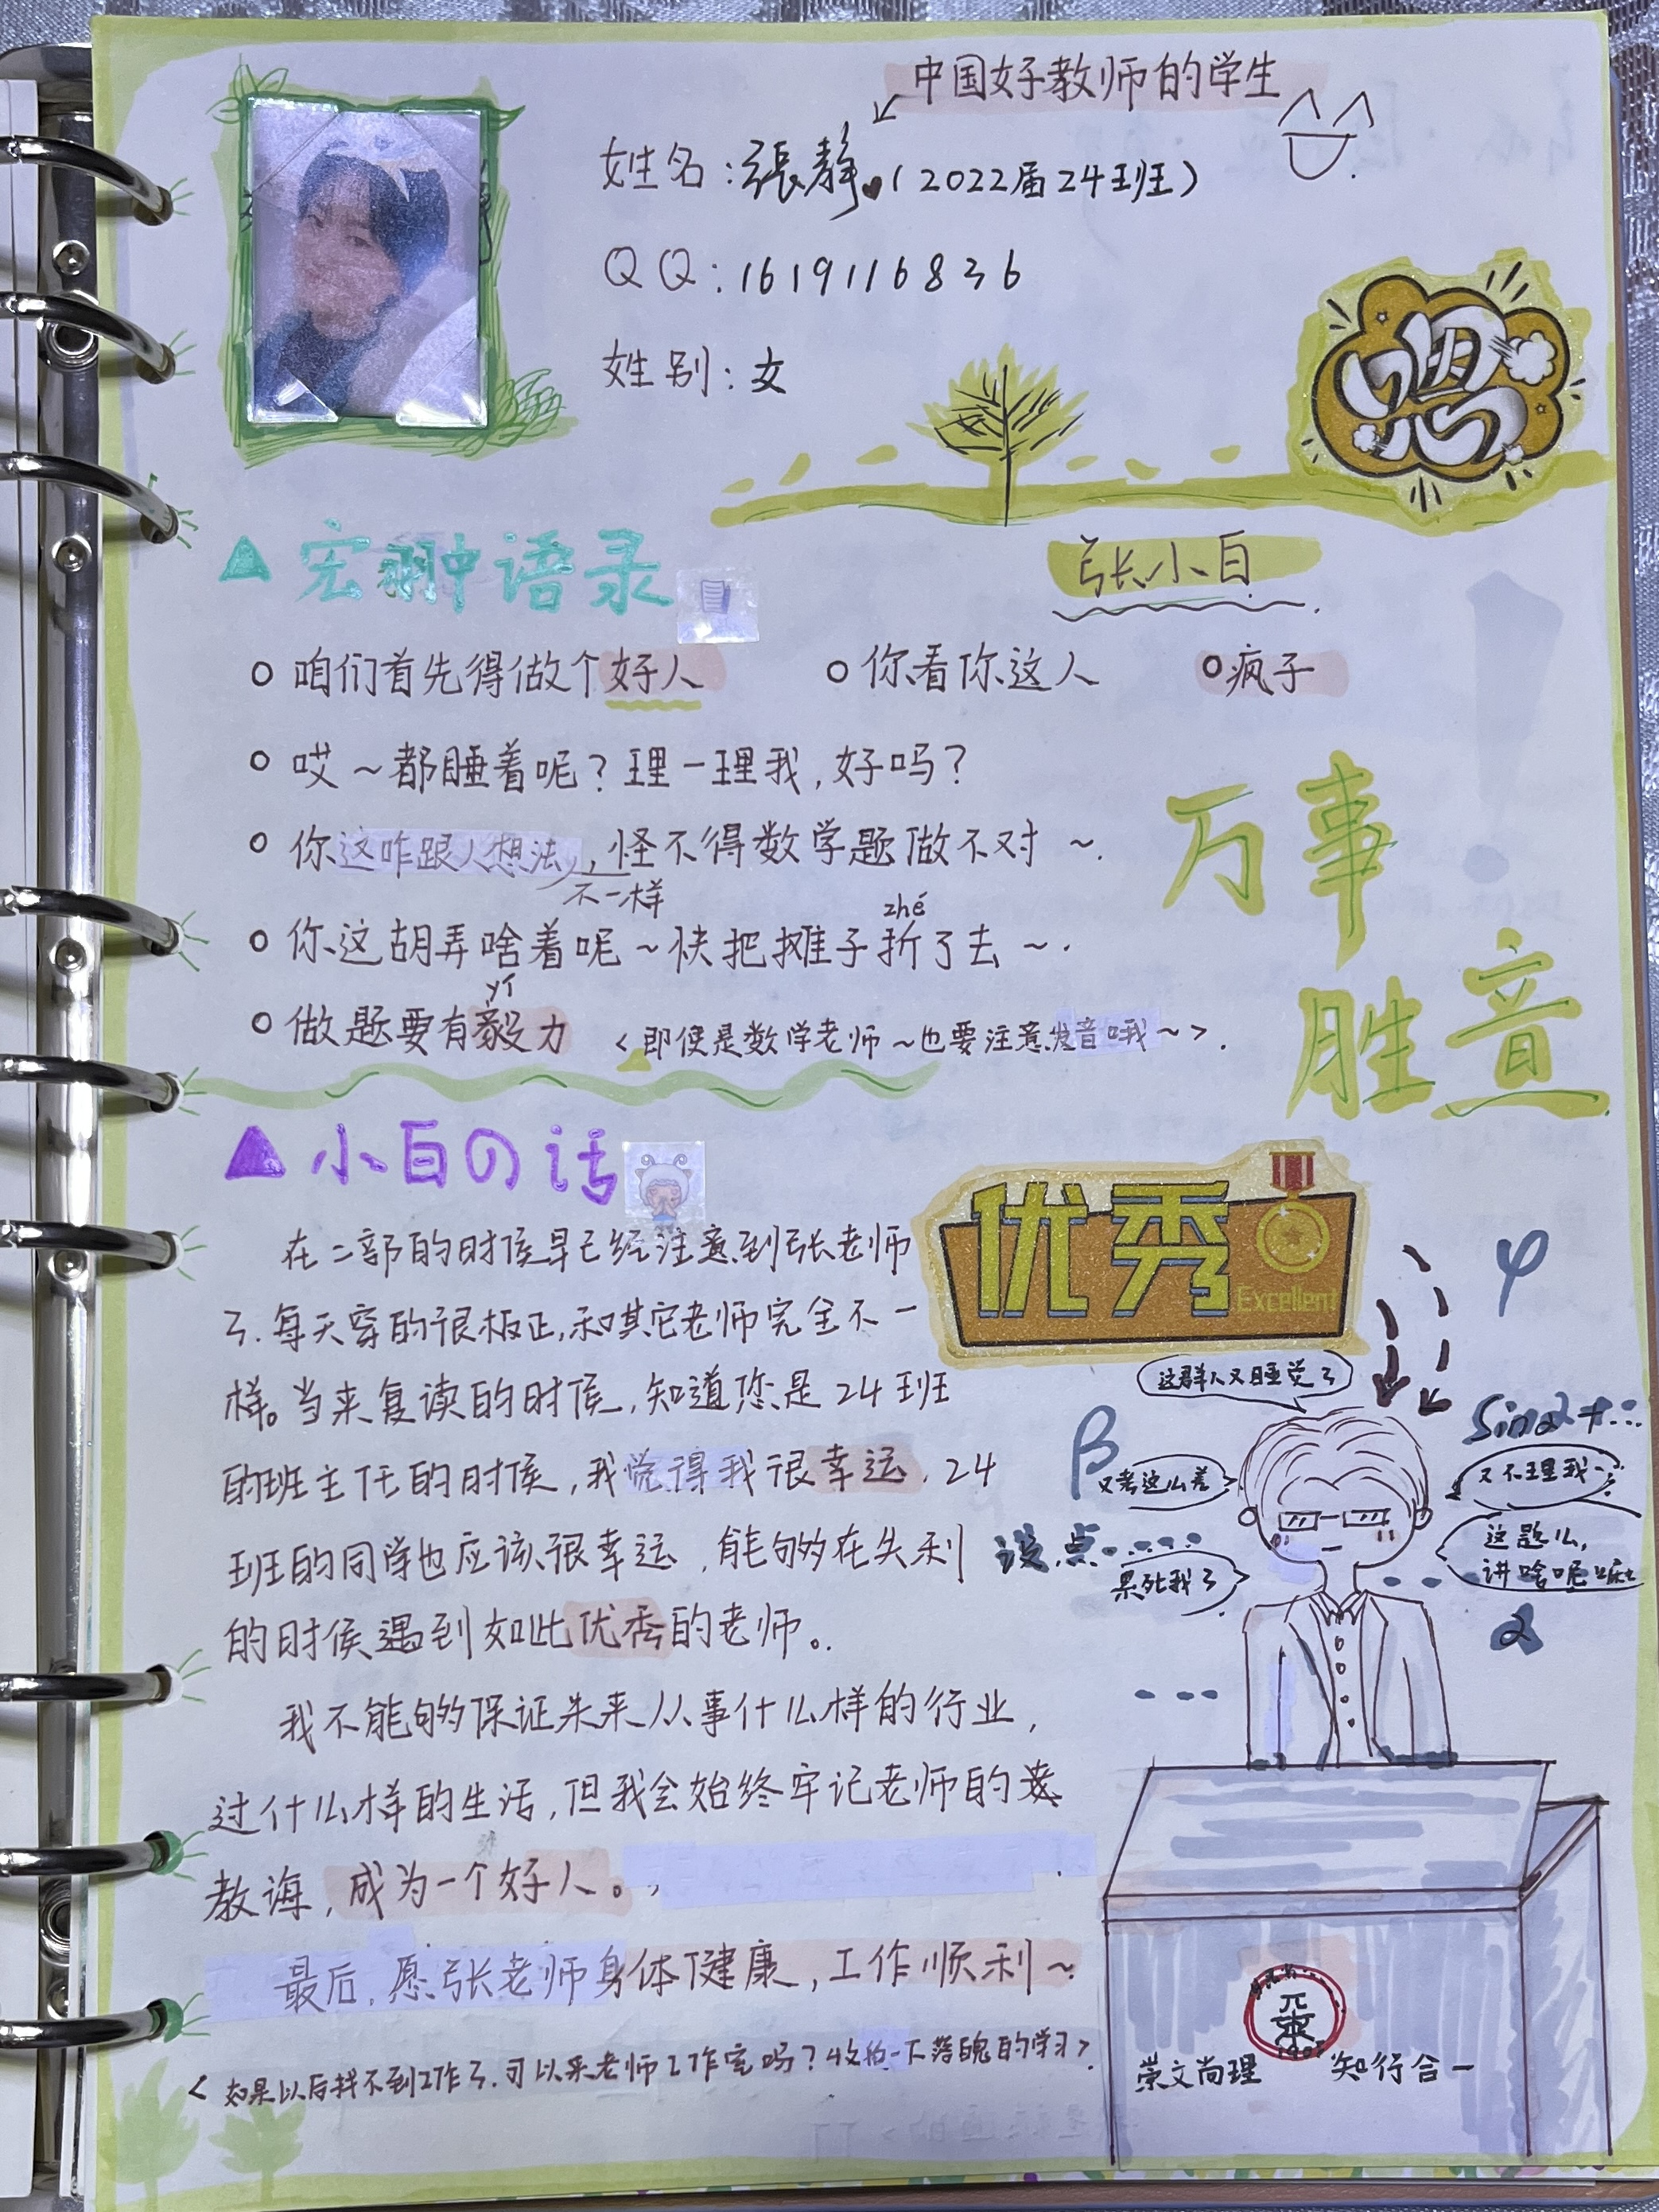 中国好教师的学生
姓名:張静(2022届24班)
QQ:1619116836
姓别:女
宏翀语录
张小白
咱们首先得做个好人
你看你这人
疯子
哎~都睡着呢?理一理我,好吗?
你这咋跟人想法,怪不得数学题做不对~.
不一样
zhé
你这胡弄啥着呢~快把摊子折了去~.
yì
做题要有毅力
<即使是数学老师~也要注意发音哦~>.
万事
胜意
小白の话
在二部的时侯早已经注意到张老师
了.每天穿的很板正,和其它老师完全不一
样。当来复读的时侯,知道您是24班
的班主任的时侯,我觉得我很幸运.24
班的同学也应该很幸运,能够在失利
的时侯遇到如此优秀的老师。
我不能够保证未来从事什么样的行业,
过什么样的生活,但我会始终牢记老师的
教诲,成为一个好人。
最后,愿张老师身体健康,工作顺利~
<如果以后找不到工作了.可以来老师工作室吗?收拾一下落魄的学习>
优秀
Excellent
φ
这群人又睡觉了
β
Sinα+...
又考这么差
又不理我~
设.点.....
这题么,
讲啥呢嘛
累死我了
α
崇文尚理
知行合一